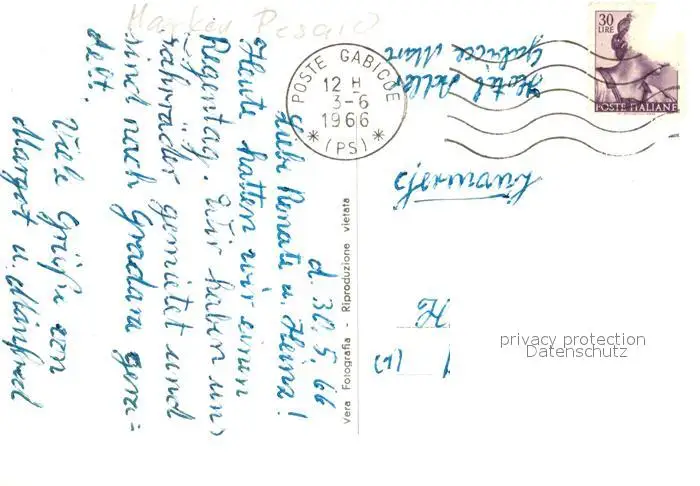 Marken Pesaro
d. 31. 5. 66
Liebe Renate u. Heinz!
Heute hatten wir einen
Regentag. Wir haben uns
Fahrräder gemietet und
sind nach Gradara gera=
delt.
Viele Grüße von
Margot u. Manfred
Vera Fotografia - Riproduzione vietata
POSTE GABICCE
12 H
3-6
1966
* (PS) *
30
LIRE
POSTE ITALIANE
Hotel Adler
Gabicce Mare
Germania
privacy protection
Datenschutz